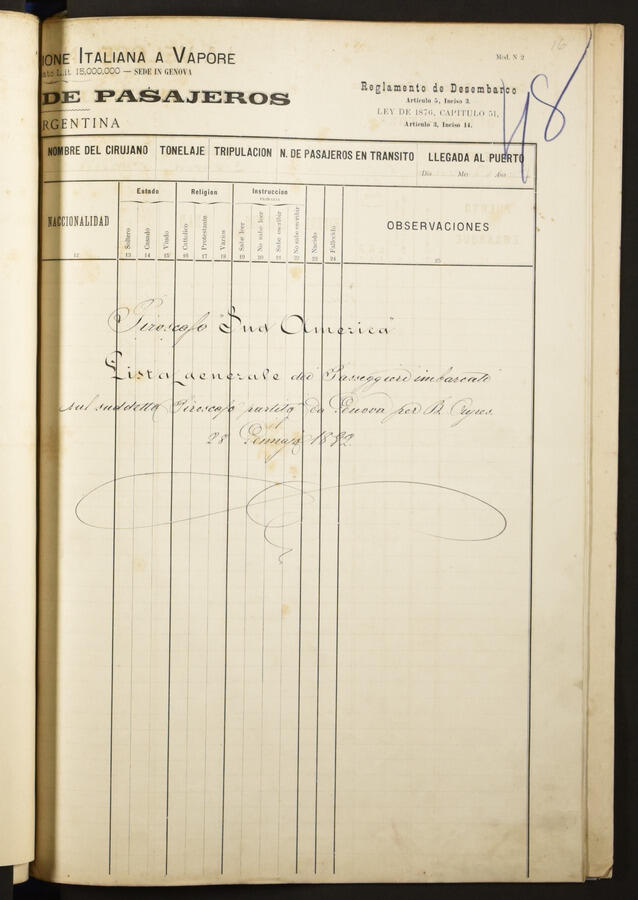 16
IONE ITALIANA A VAPORE
Mod. N 2
ato Lit 15,000,000 — SEDE IN GENOVA
48
DE PASAJEROS
Reglamento de Desembarco
Artículo 5, Inciso 3.
RGENTINA
LEY DE 1876, CAPITULO 51,
Artículo 3, Inciso 14.
NOMBRE DEL CIRUJANO TONELAJE TRIPULACION N. DE PASAJEROS EN TRANSITO LLEGADA AL PUERTO
Dia Mes Año
NACCIONALIDAD Estado Religion Instruccion OBSERVACIONES
Soltero Casado Viudo Cattolico Protestante Varios Sabe leer No sabe leer Sabe escribir No sabe escribir Nacido Fallecido
12 13 14 15 16 17 18 19 20 21 22 23 24 25
Piroscafo "Sud America"
Lista generale dei Passeggieri imbarcati
sul suddetto Piroscafo partito da Genova per B. Ayres
28 Gennajo 1892